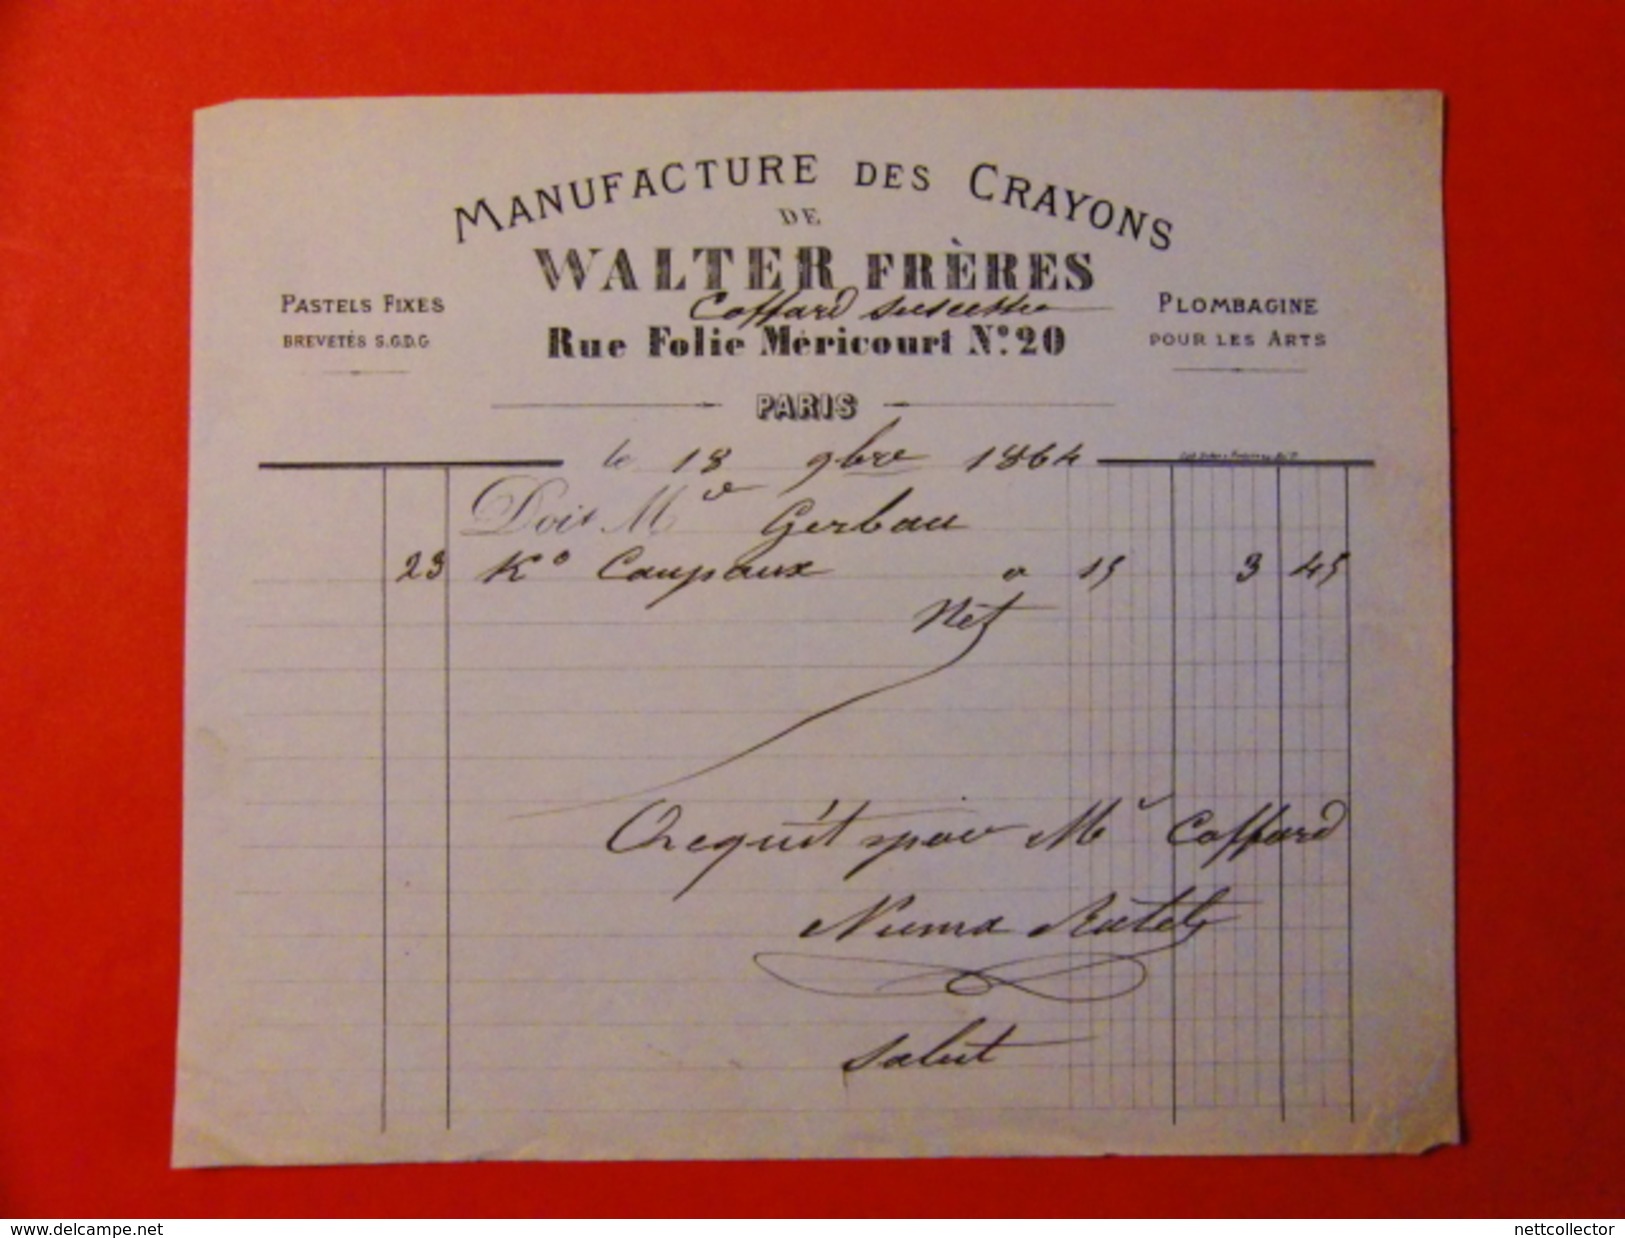 MANUFACTURE DES CRAYONS
DE
WALTER FRÈRES
Coffard successeur
PASTELS FIXES
BREVETÉS S.G.D.G
Rue Folie Méricourt N.º 20
PLOMBAGINE
POUR LES ARTS
PARIS
le 18 9bre 1864
Doit M Gerbau
23 Kº Caupaux a 15 3 45
Net
Acquit pour Mr Coffard
Numa
Salut
www.delcampe.net
nettcollector